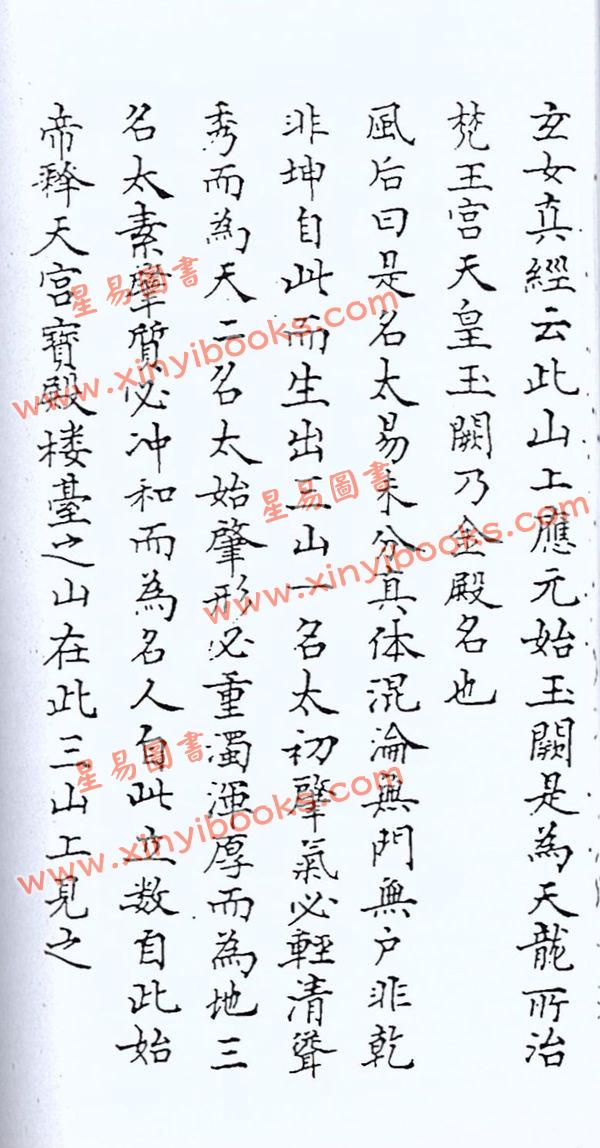 玄女真經云此山上應元始玉闕是為天龍所治
梵王宫天皇玉闕乃金殿名也
風后曰是名太易未分真体混淪無門無户非乾
非坤自此而生出三山一名太初肇氣必輕清聳
秀而為天二名太始肇形必重濁渾厚而為地三
名太素肇質必冲和而為名人自此立数自此始
帝釋天宫寶殿楼臺之山在此三山上見之
星易圖書
www.xinyibooks.com
星易圖書
www.xinyibooks.com
星易圖書
www.xinyibooks.com